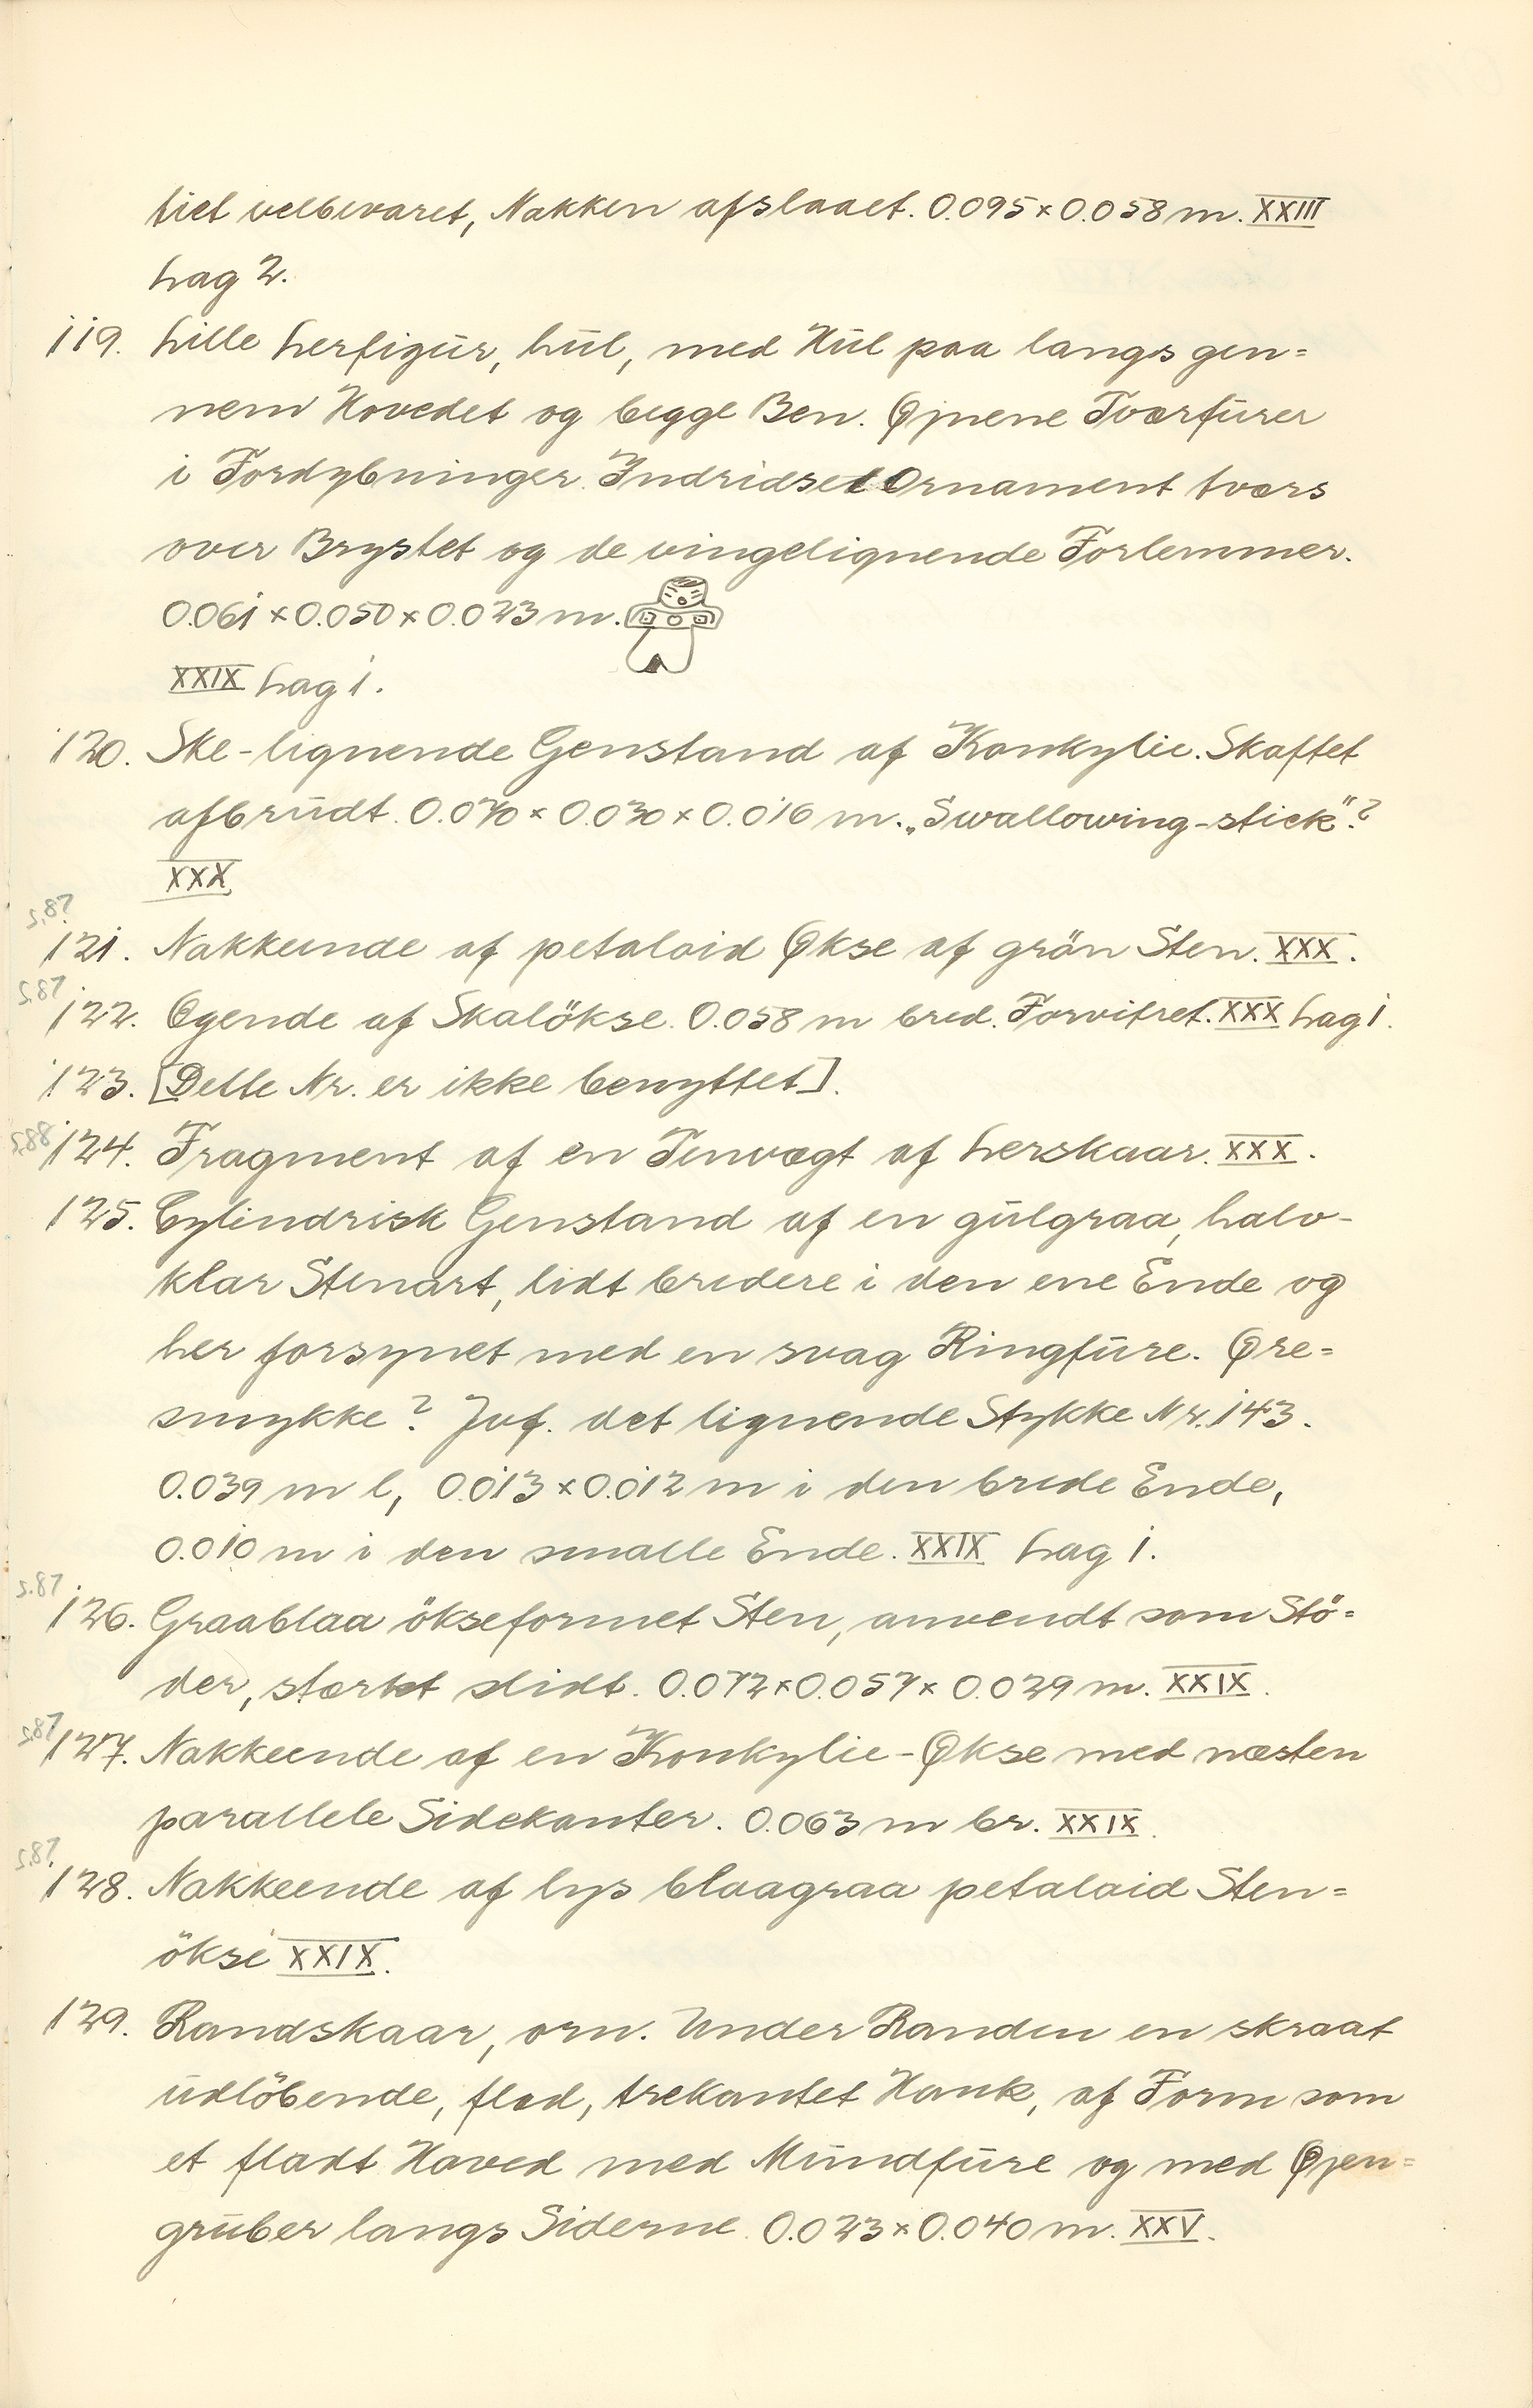 tiet velbevaret, Nakken afslaaet. 0.095 × 0.058 m. XXIII
Lag 2.
119. Lille Lerfigūr, hūl, med Hūl paa langs gen=
nem Hovedet og begge Ben. Øjnene Tværfūrer
i Fordybninger. Indridset Ornament tværs
over Brystet og de vingelignende Forlemmer.
0.061 × 0.050 × 0.023 m.
XXIX Lag 1.
120. Ske-lignende Genstand af Konkylie. Skaftet
afbrūdt. 0.070 × 0.030 × 0.016 m. „Swallowing-stick"?
XXX
s.87
121. Nakkeende af petaloid Økse af grön Sten. XXX.
s.87
122. Egende af Skalökse. 0.058 m bred. Forvitret. XXX Lag 1.
123. [Dette Nr. er ikke benyttet].
s.88 124. Fragment af en Tenvægt af Lerskaar. XXX.
125. Cylindrisk Genstand af en gūlgraa, halv-
klar Stenart, lidt bredere i den ene Ende og
her forsynet med en svag Ringfūre. Øre=
smykke? Jvf. det lignende Stykke Nr. 143.
0.039 m l, 0.013 × 0.012 m i den brede Ende,
0.010 m i den smalle Ende. XXIX Lag 1.
s.87
126. Graablaa ökseformet Sten, anvendt som Stö=
der, stærkt slidt. 0.072 × 0.057 × 0.029 m. XXIX.
s.87 127. Nakkeende af en Konkylie-Økse med næsten
parallele Sidekanter. 0.063 m br. XXIX.
s.87.
128. Nakkeende af lys blaagraa petaloid Sten=
ökse XXIX.
129. Randskaar, orn. Under Randen en skraat
ūdlöbende, flad, trekantet Hank, af Form som
et fladt Hoved med Mūndfūre og med Øjen=
grūber langs Siderne. 0.023 × 0.040 m. XXV.